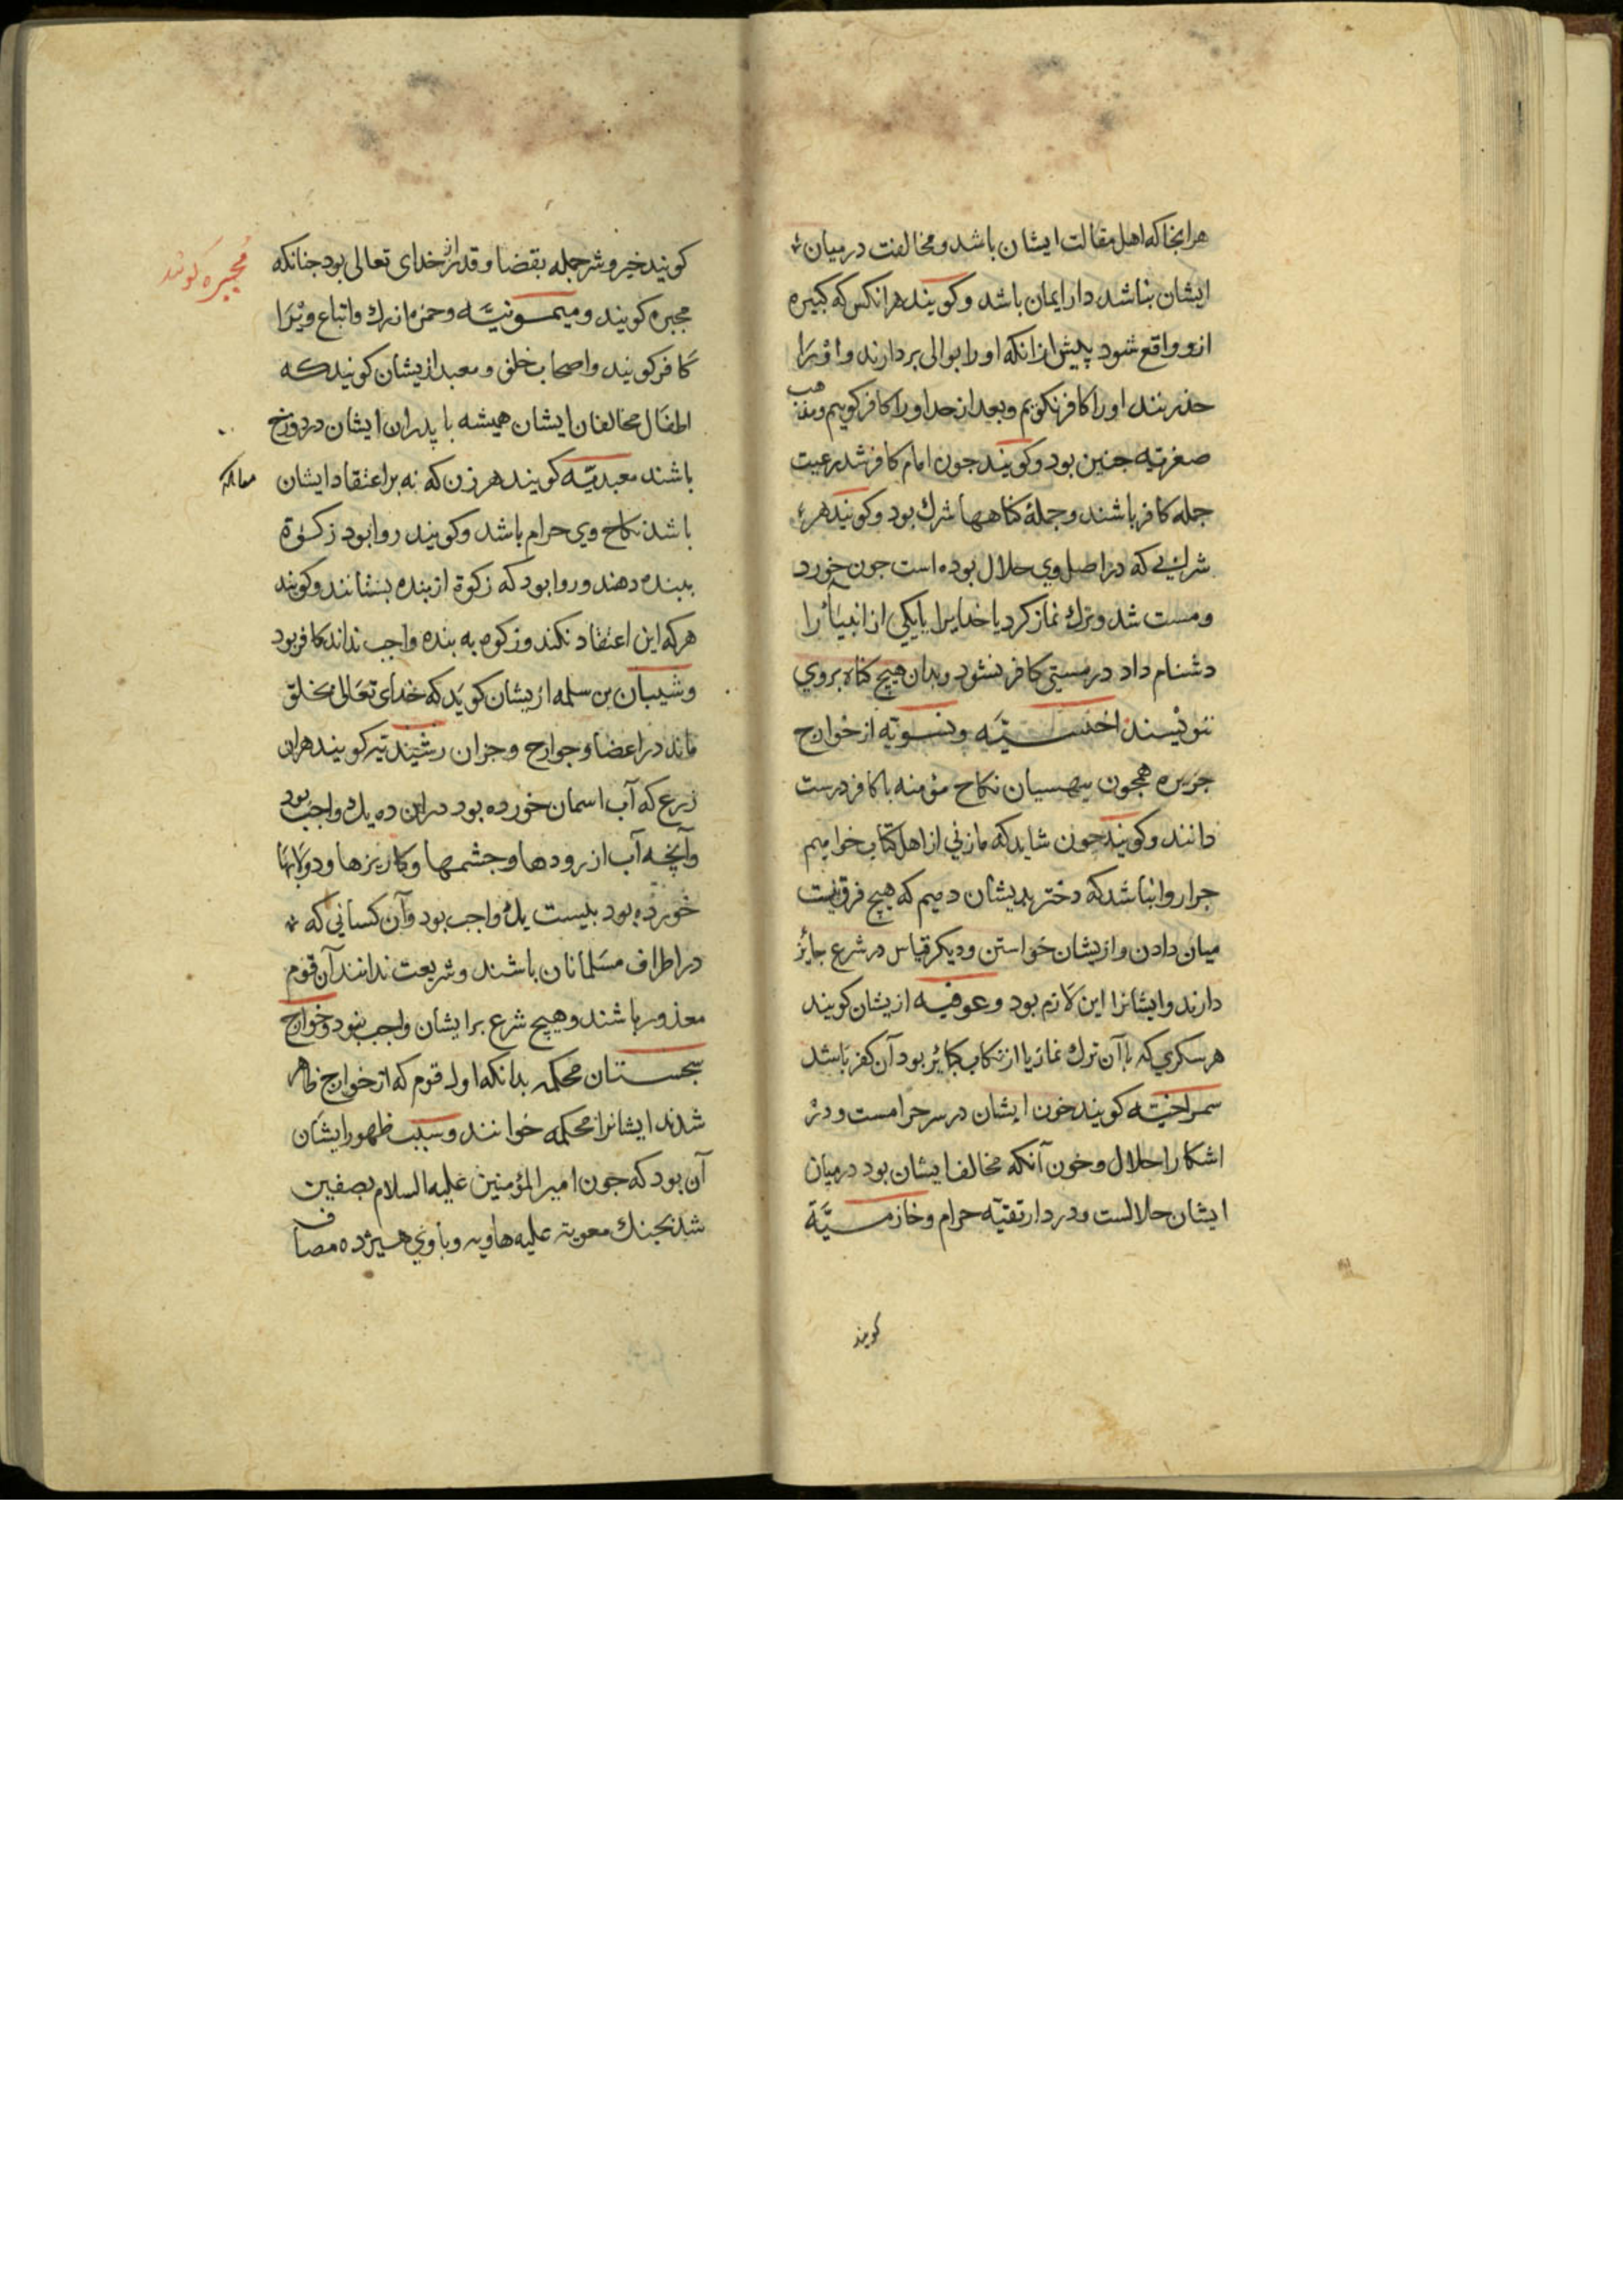 هرانجا که اهل مقالت ایشان باشد و مخالفت در میان
ایشان نباشد دار ایمان باشد و کویند هرانکس که کبیره
ازو واقع شود پیش ازانکه اورا بوالی بردارند و اورا
حد زنند اورا کافر نکویم و بعد از حد اورا کافر کوییم و مذهب
صفریه جنین بود و کویند جون امام کافر شد رعیت
جمله کافر باشند و جمله کناهها شرك بود و کویند هر
شرابی که در اصل وی حلال بوده است جون خورد
و مست شد و ترك نماز کرد یا خدایرا یا یکی از انبیا را
دشنام داد در مستی کافر نشود و بدان هیچ کناه بروی
ننویسند اخنسیّه و از خوارج
جزیره همجون بیهسیان نکاح مؤمنه با کافر درست
دانند و کویند جون شاید که ما زنی از اهل کتاب خواهیم
جرا روا نباشد که دختر بدیشان دهیم که هیچ فرق نیست
میان دادن و ازیشان خواستن و دیکر قیاس در شرع جایز
دارند و ایشانرا این لازم بود و عوفیه ازیشان کویند
هر سکری که با آن ترك نماز یا ارتکاب کبائر بود آن کفر باشد
سمراخیّه کویند خون ایشان در سر حرامست و در
اشکارا حلال و خون آنکه مخالف ایشان بود در میان
ایشان حلالست و در دار تقیّه حرام و خازمیّة
کویند
کویند خیر و شر جمله بقضا و قدر از خدای تعالی بود جنانکه
مجبره کویند و میمونیّه و حمزه ازرك و اتباع ویرا
کافر کویند و اصحاب خلف و معبد ازیشان کویند که
اطفال مخالفان ایشان همیشه با پدران ایشان در دوزخ
باشند معبدیّه کویند هر زن که نه بر اعتقاد ایشان
باشد نکاح وی حرام باشد و کویند روا بود زکوة
ببنده دهند و روا بود که زکوة از بنده بستانند و کویند
هر که این اعتقاد نکند و زکوه به بنده واجب نداند کافر بود
و شیبان بن سلمه ازیشان کوید که خدای تعالی بخلق
ماند در اعضا و جوارح و جزان رشیدیه کویند هران
زرع که آب اسمان خورده بود دران ده یك واجب بود
و آنچه آب از رودها و جشمها و کاریزها و دولابها
خورده بود بیست یك واجب بود و آن کسانی که
در اطراف مسلمانان باشند و شریعت ندانند آن قوم
معذور باشند و هیچ شرع بر ایشان واجب نبود و خوارج
سجستان محکمه بدانکه اول قوم که از خوارج ظاهر
شدند ایشانرا محکمه خوانند و سبب ظهور ایشان
آن بود که جون امیر المؤمنین علیه السلام بصفین
شد بجنك معویه علیه هاویه و با وی هیزده مصاف
مجبره کویند